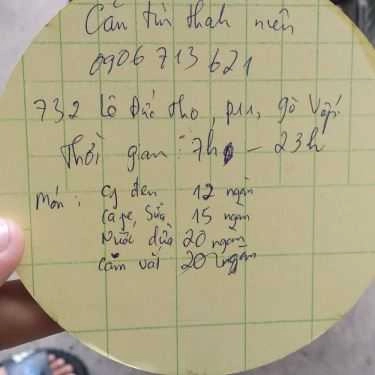 Căn tin thanh niên
0906713621
732 Lê Đức Thọ, P11, gò Vấp
Thời gian: 7h - 23h
Món: Cf đen 12 ngàn
Cafe, Sữa 15 ngàn
Nước dừa 20 ngàn
20 ngàn